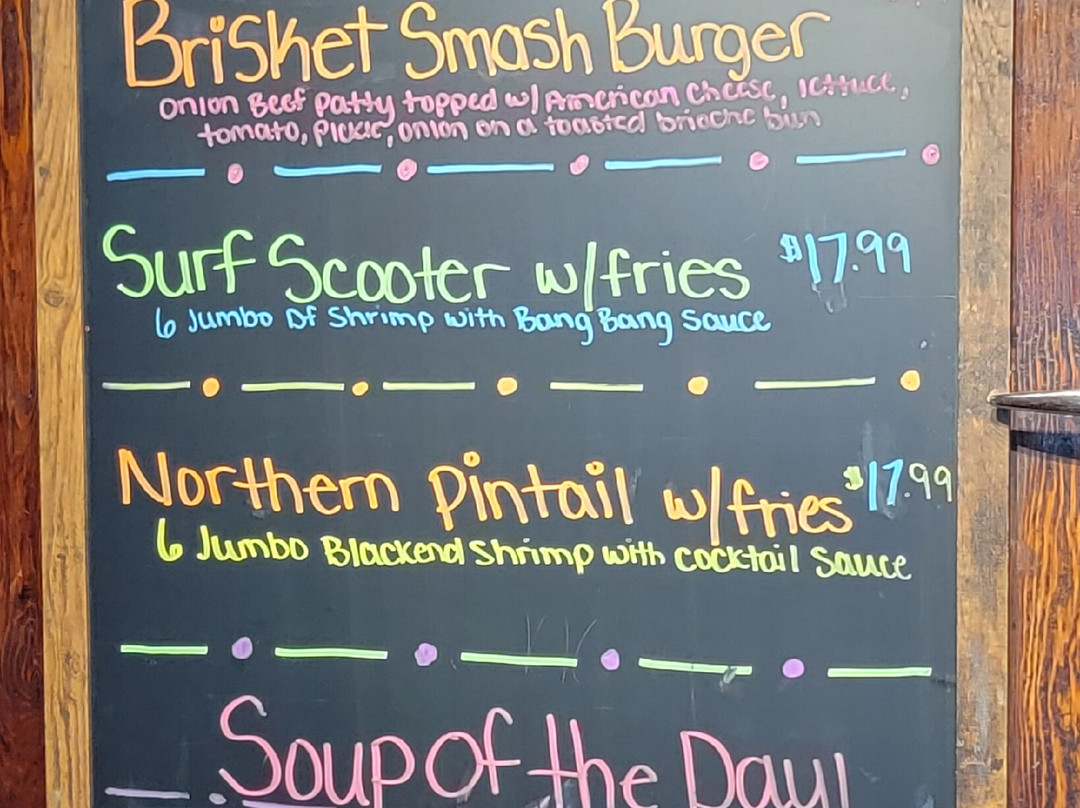 Brisket Smash Burger
onion Beef patty topped w/ American cheese, lettuce,
tomato, pickle, onion on a toasted brioche bun
Surf Scooter w/fries $17.99
6 Jumbo Df Shrimp with Bang Bang Sauce
Northern Pintail w/fries $17.99
6 Jumbo Blackend Shrimp with Cocktail Sauce
Soup of the Day!